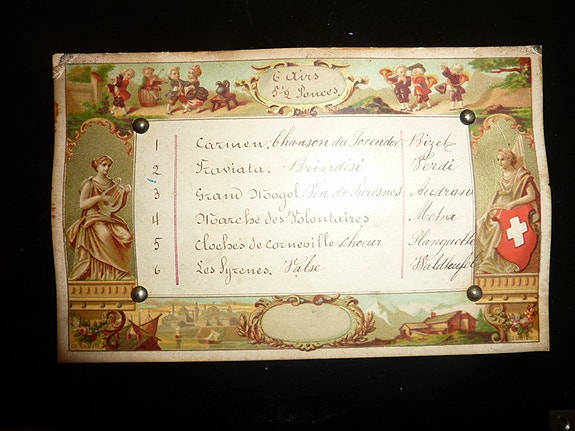 6 Airs
5½ Pouces
1 Carmen: Chanson du Toreador Bizet
2 Traviata. Brindisi Verdi
3 Grand Mogol Vin de Suresnes Audran
4 Marche des Volontaires Metra
5 Cloches de Corneville Choeur Planquette
6 Les Pyrenes. Valse Waldteufel